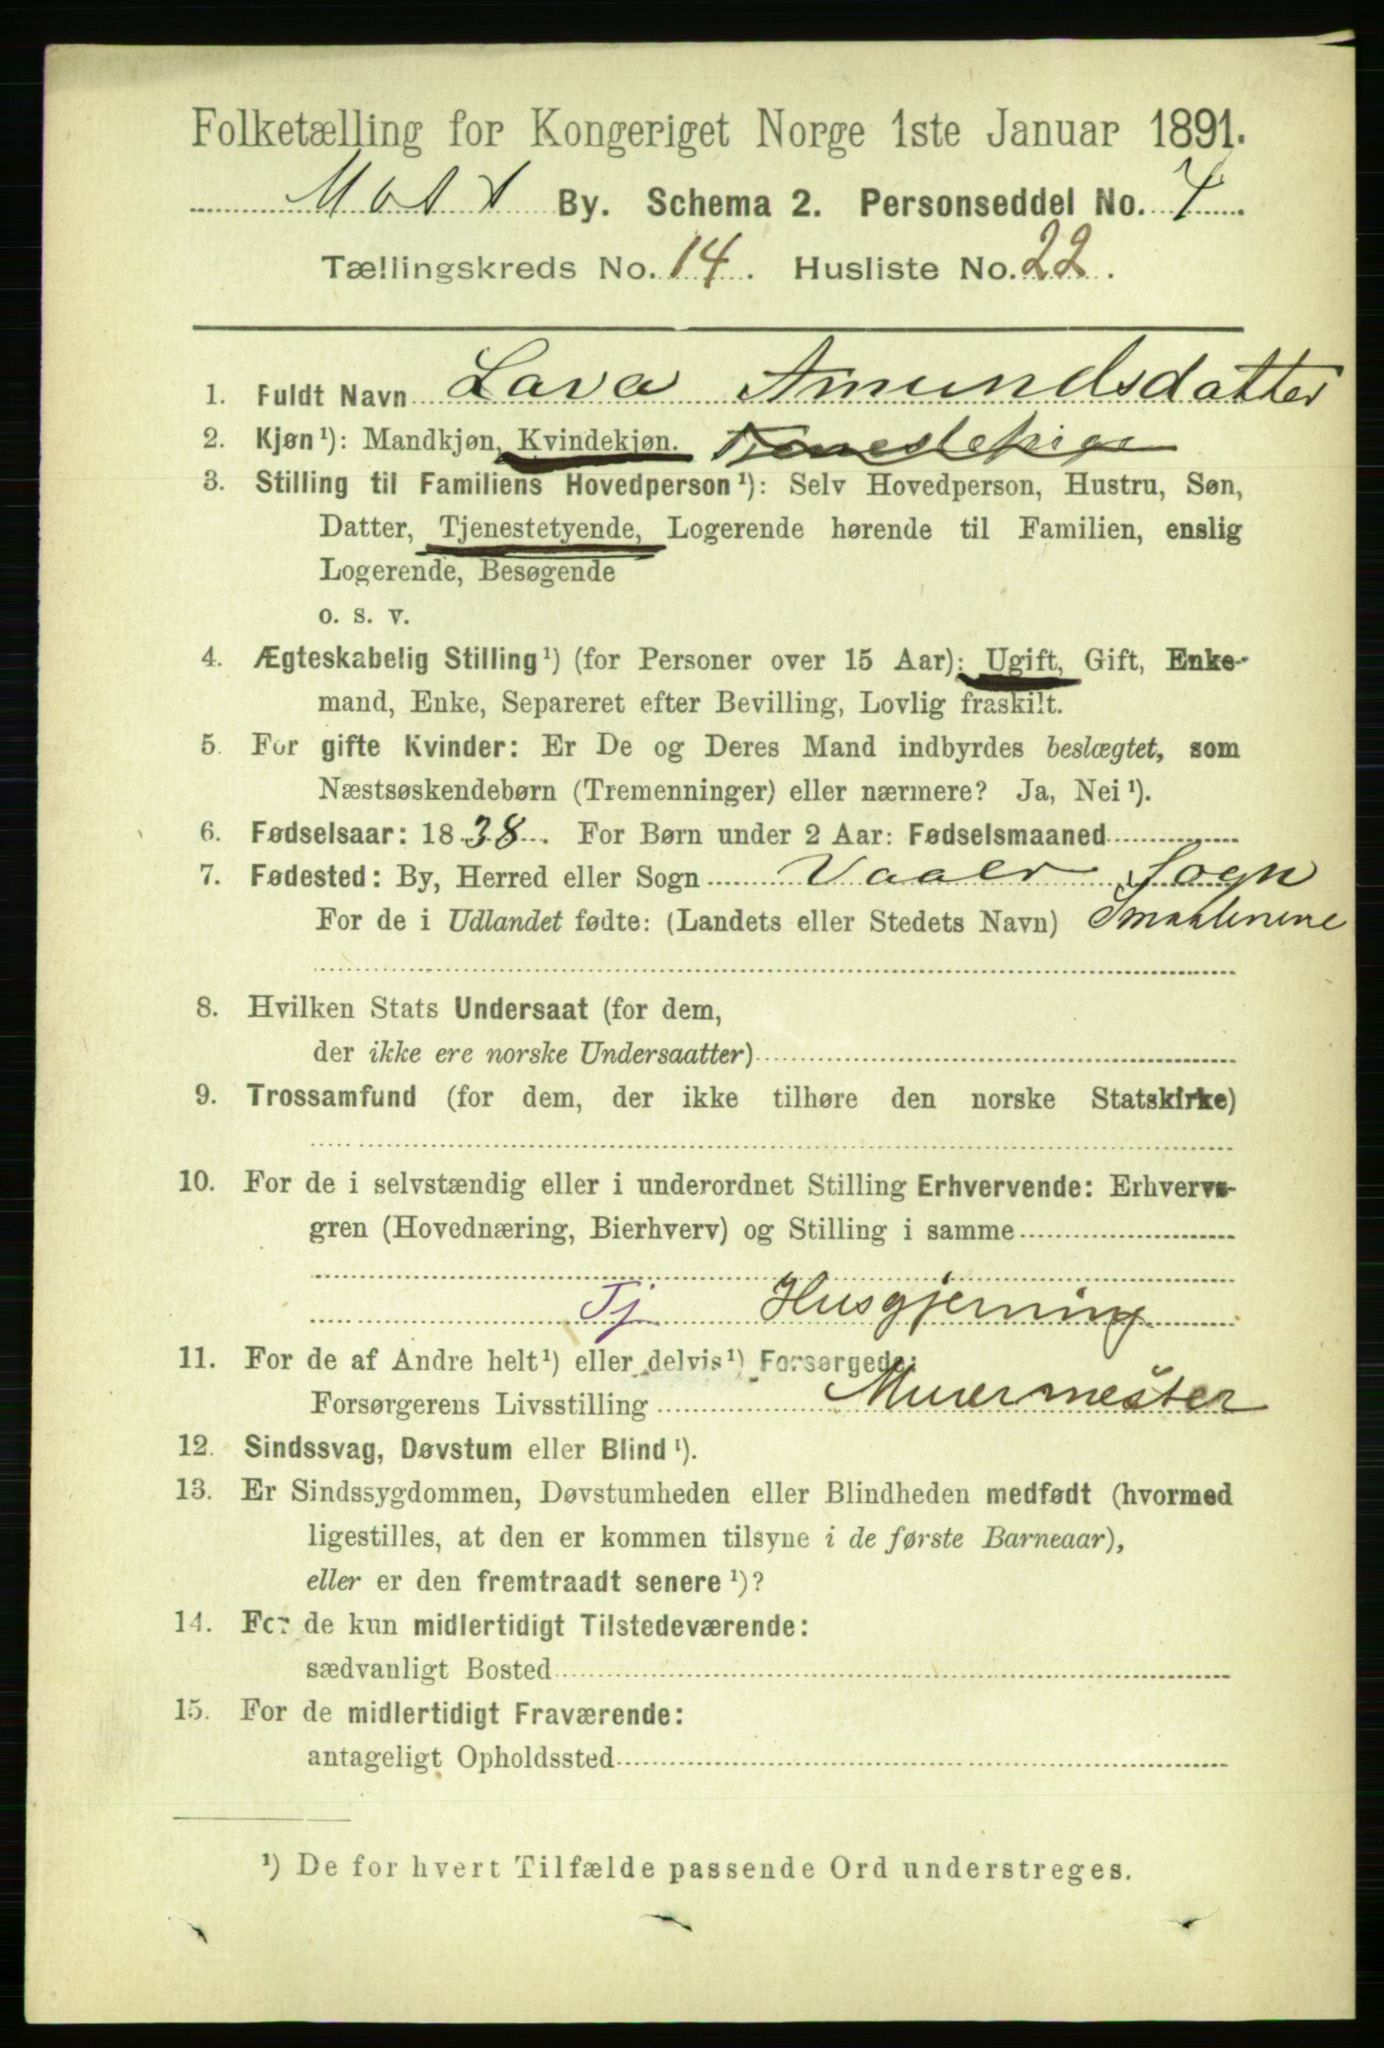 Folketælling for Kongeriget Norge 1ste Januar 1891.
Moss By. Schema 2. Personseddel No. 4.
Tællingskreds No. 14. Husliste No. 22.
1. Fuldt Navn Lava Amundsdatter
2. Kjøn¹): Mandkjøn, Kvindekjøn. Tjenestepige
3. Stilling til Familiens Hovedperson¹): Selv Hovedperson, Hustru, Søn,
Datter, Tjenestetyende, Logerende hørende til Familien, enslig
Logerende, Besøgende
o. s. v.
4. Ægteskabelig Stilling¹) (for Personer over 15 Aar): Ugift, Gift, Enke-
mand, Enke, Separeret efter Bevilling, Lovlig fraskilt.
5. For gifte Kvinder: Er De og Deres Mand indbyrdes beslægtet, som
Næstsøskendebørn (Tremenninger) eller nærmere? Ja, Nei¹).
6. Fødselsaar: 1838. For Børn under 2 Aar: Fødselsmaaned
7. Fødested: By, Herred eller Sogn Vaaler Sogn
For de i Udlandet fødte: (Landets eller Stedets Navn) Smaalenene
8. Hvilken Stats Undersaat (for dem,
der ikke ere norske Undersaatter)
9. Trossamfund (for dem, der ikke tilhøre den norske Statskirke)
10. For de i selvstændig eller i underordnet Stilling Erhvervende: Erhvervs-
gren (Hovednæring, Bierhverv) og Stilling i samme
Tj Husgjerning
11. For de af Andre helt¹) eller delvis¹) Forsørgede:
Forsørgerens Livsstilling Murermester
12. Sindssvag, Døvstum eller Blind¹).
13. Er Sindssygdommen, Døvstumheden eller Blindheden medfødt (hvormed
ligestilles, at den er kommen tilsyne i de første Barneaar),
eller er den fremtraadt senere¹)?
14. For de kun midlertidigt Tilstedeværende:
sædvanligt Bosted
15. For de midlertidigt Fraværende:
antageligt Opholdssted
¹) De for hvert Tilfælde passende Ord understreges.